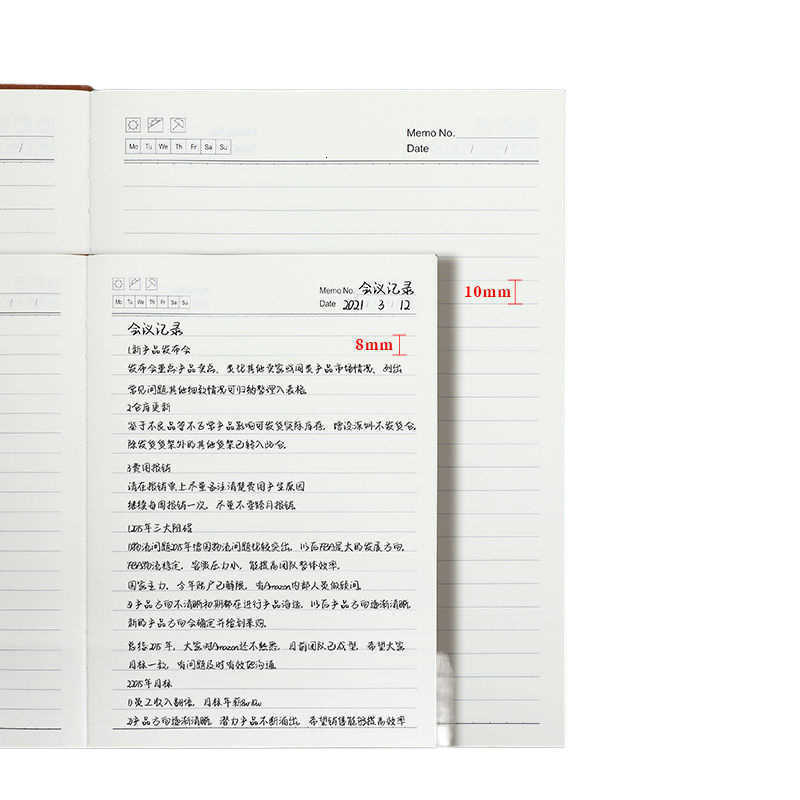 Memo No.
Mo Tu We Th Fr Sa Su
Date / /
/
10mm
Memo No. 会议记录
Mo Tu We Th Fr Sa Su
Date 2021 / 3 / 12
/ /
会议记录
8mm
1.新产品发布会
发布会重点产品卖点，类比其他卖家或同类产品市场情况，列出
常见问题其他细致情况可归纳整理入表格。
2.仓库更新
鉴于不良品等不正常产品影响可发货实际库存，增设深圳不发货仓。
除发货货架外的其他货架已转入此仓。
3.费用报销
请在报销单上尽量备注清楚费用产生原因
继续每周报销一次，尽量不要跨月报销。
1.2015年三大阻碍
1)物流问题2015年德国物流问题比较突出，以后FBA是大的发展方向。
FBA物流稳定，客服压力小，能提高团队整体效率。
国家主力，今年账户已解限，有Amazon内部人员做顾问。
3)产品方向不清晰初期都在进行产品海选，以后产品方向逐渐清晰，
新的产品方向会确定并检到采购。
总结2015年，大家对Amazon还不熟悉，目前团队已成型，希望大家
目标一致，有问题及时有效地沟通
2.2015年目标
1)员工收入翻倍，目标年薪8w-10w
2)产品方向逐渐清晰，潜力产品不断涌出，希望销售能够提高效率